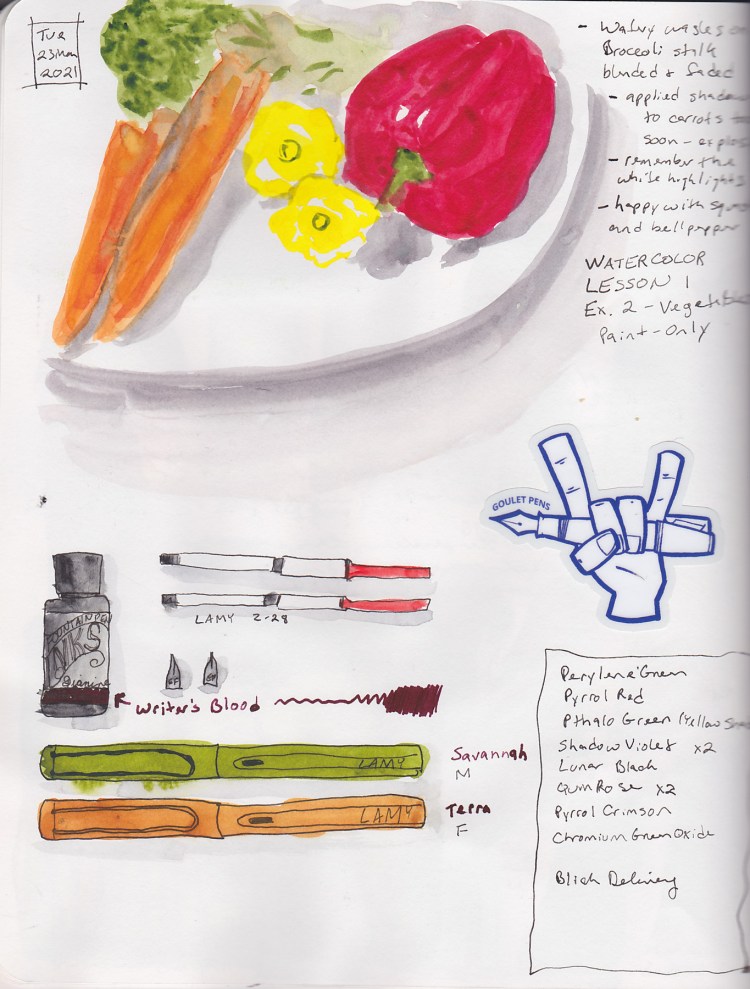 Tue
23 Mar
2021
- Watery washes on
Broccoli stalk
blended & faded
- applied shadow
to carrots too
soon -
- remember the
white highlights
- happy with squash
and bell pepper
WATERCOLOR
LESSON 1
Ex. 2 - Vegetables
Paint-Only
GOULET PENS
FOUNTAIN PEN
INKS
LAMY Z-28
EF
Writer's Blood
LAMY
Savannah
M
LAMY
Terra
F
Perylene Green
Pyrrol Red
Pthalo Green (Yellow Shade
Shadow Violet x2
Lunar Black
Quin Rose x2
Pyrrol Crimson
Chromium Green Oxide
Blick Delivery